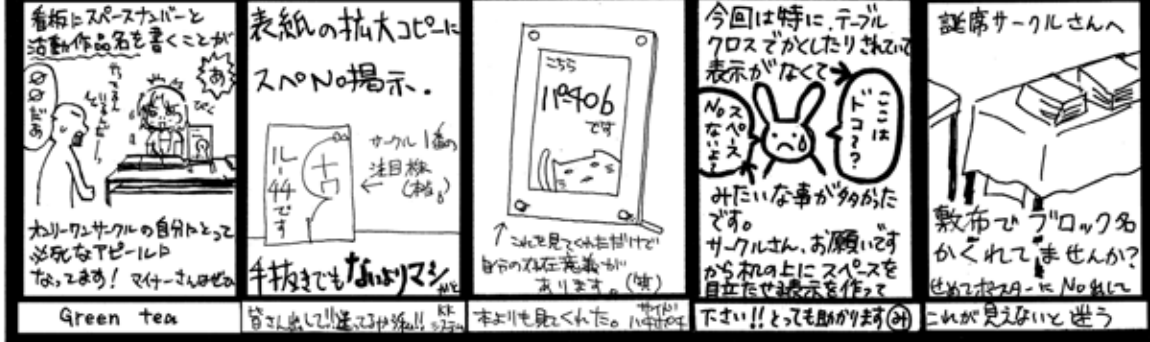 看板にスペースナンバーと
活動作品名を書くことが
あ
だあ
オンリーワンサークルの自分にとって
必死なアピールに
なってます! マイナーさんはぜひ
Green tea
表紙の拡大コピーに
スペNo掲示.
サークル1番の
注目株
ル-44です
手抜きでもないよりマシかと
皆さん出して!!迷ってるか派!!
こちら
パ-40b
です
↑これを見てくれただけで
自分の存在意義が
あります。(笑)
本よりも見てくれた。
今回は特に、テーブル
クロスでかくしたりされていて
表示がなくて
ここは
ドコ~?
スペース
Noないよ?
みたいな事が多かった
です。
サークルさん、お願いです
から机の上にスペースを
目立たせる表示を作って
下さい!!とっても助かります(み)
誕席サークルさんへ
敷布でブロック名
かくれてませんか?
せめてポスターにNo出して
これが見えないと迷う